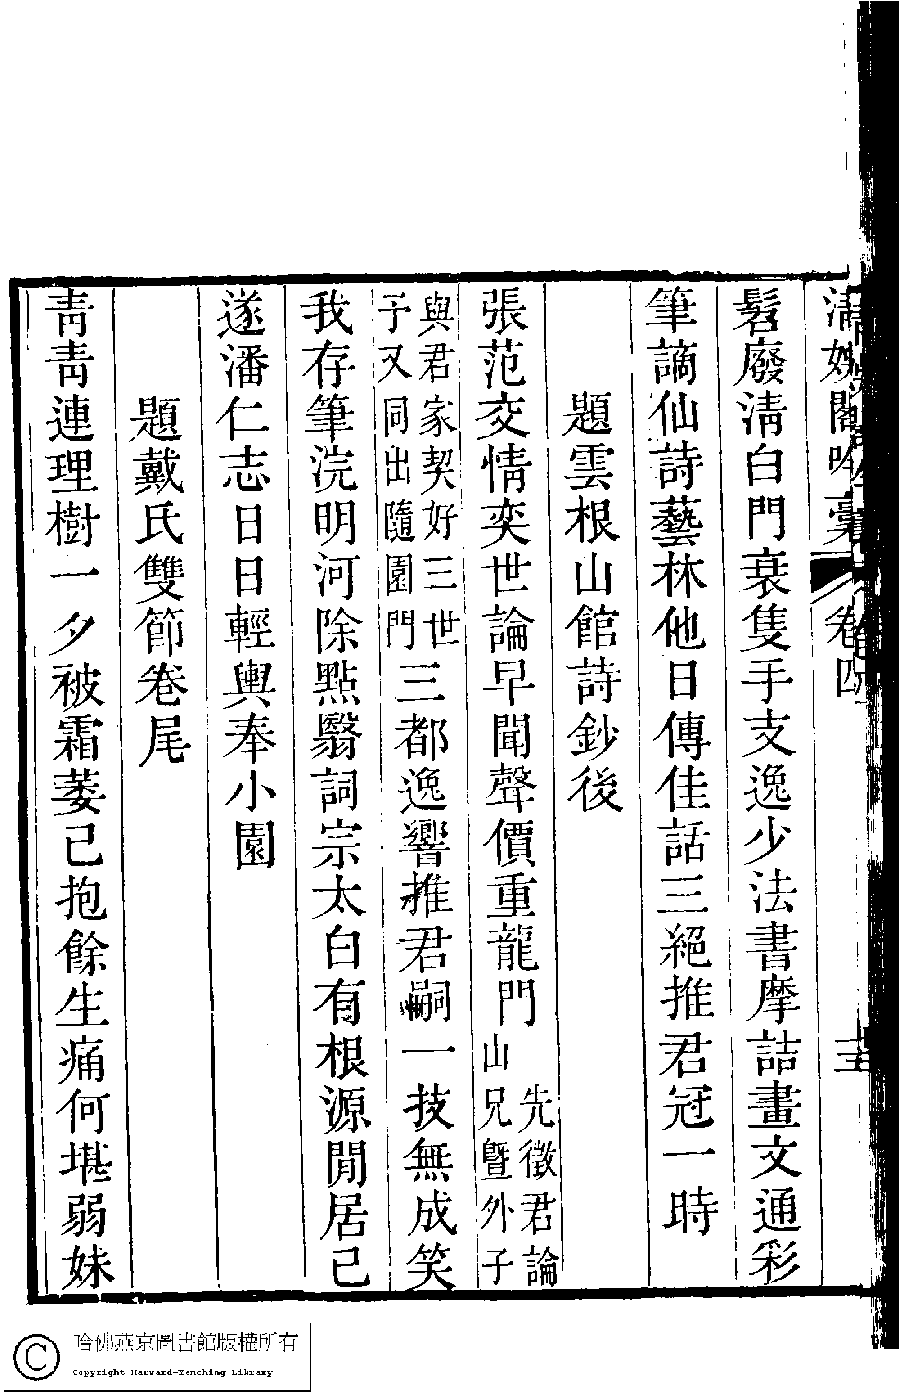 清娛閣吟藁 卷四
髫廢清白門衰隻手支逸少法書摩詰畫文通彩
筆謫仙詩藝林他日傳佳話三絕推君冠一時
題雲根山館詩鈔後
張范交情奕世論早聞聲價重龍門
先徵君論
山兄暨外子
與君家契好三世
子又同出隨園門
三都逸響推君嗣一技無成笑
我存筆浣明河除點翳詞宗太白有根源閒居已
遂潘仁志日日輕輿奉小園
題戴氏雙節卷尾
青青連理樹一夕被霜萎已抱餘生痛何堪弱妹
哈佛燕京圖書館版權所有
Copyright Harvard-Yenching Library